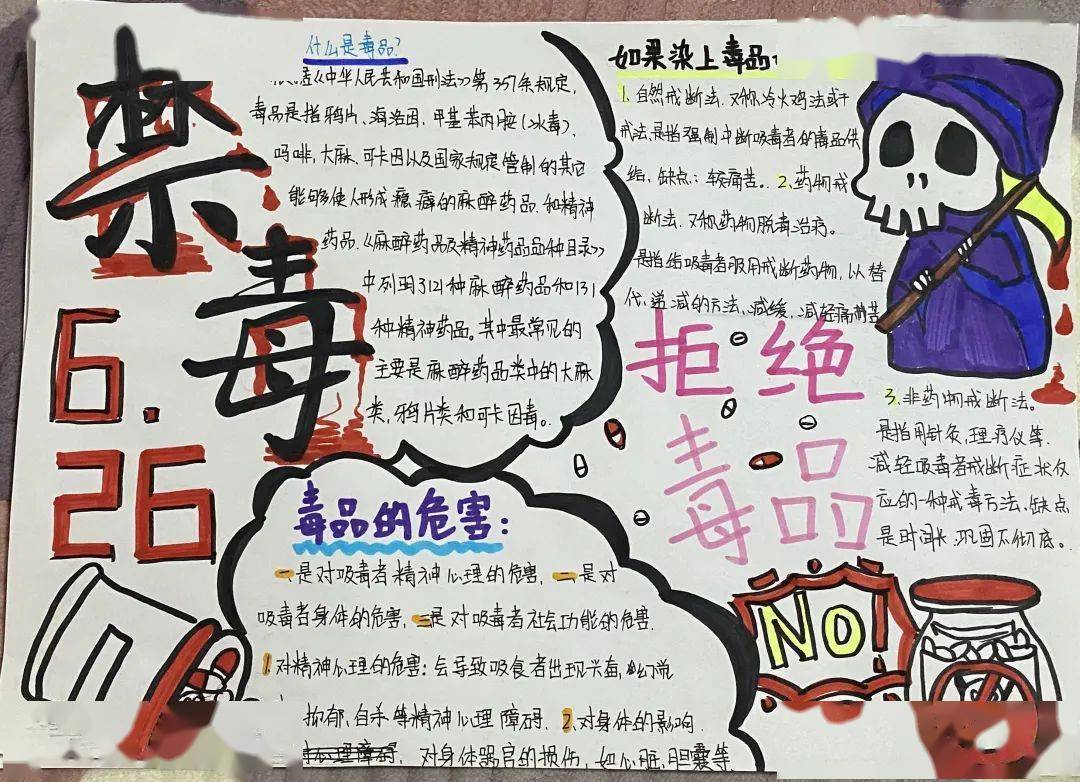 禁毒
6.26
什么是毒品?
《中华人民共和国刑法》第357条规定,
毒品是指鸦片、海洛因、甲基苯丙胺(冰毒)、
吗啡、大麻、可卡因以及国家规定管制的其它
能够使人形成瘾癖的麻醉药品和精神
药品.《麻醉药品及精神药品品种目录》
中列明121种麻醉药品和131
种精神药品。其中最常见的
主要是麻醉药品类中的大麻
类,鸦片类和可卡因毒。
如果染上毒品
1、自然戒断法.又称冷火鸡法或干
戒法.是指强制中断吸毒者的毒品供
给、缺点:较痛苦。2、药物戒
断法.又称药物脱毒治疗。
是指给吸毒者服用戒断药物,以替
代、递减的方法,减缓、减轻痛苦
拒绝
毒品
3、非药物戒断法。
是指用针灸、理疗仪等.
减轻吸毒者戒断症状反
应的一种戒毒方法、缺点
是时间长.巩固不彻底。
毒品的危害:
一是对吸毒者精神心理的危害,二是对
吸毒者身体的危害,三是对吸毒者社会功能的危害.
1.对精神心理的危害:会导致吸食者出现兴奋,
抑郁、自杀等精神心理障碍、2.对身体的影响.
对身体器官的损伤,如心脏,胆囊等
No!